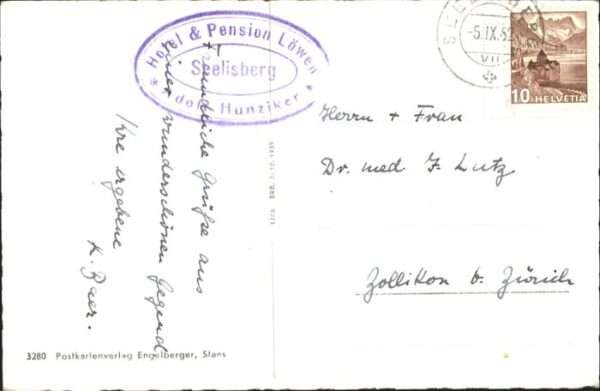 Hotel & Pension Löwen
Seelisberg
Hunziker
Freundliche Grüße aus
einer wunderschönen Gegend
Ihre ergebene
K. Baer.
3280 Postkartenverlag Engelberger, Stans
-5.IX.52
VII
10 HELVETIA
Herrn + Frau
Dr. med F. Lutz
Zollikon b. Zürich